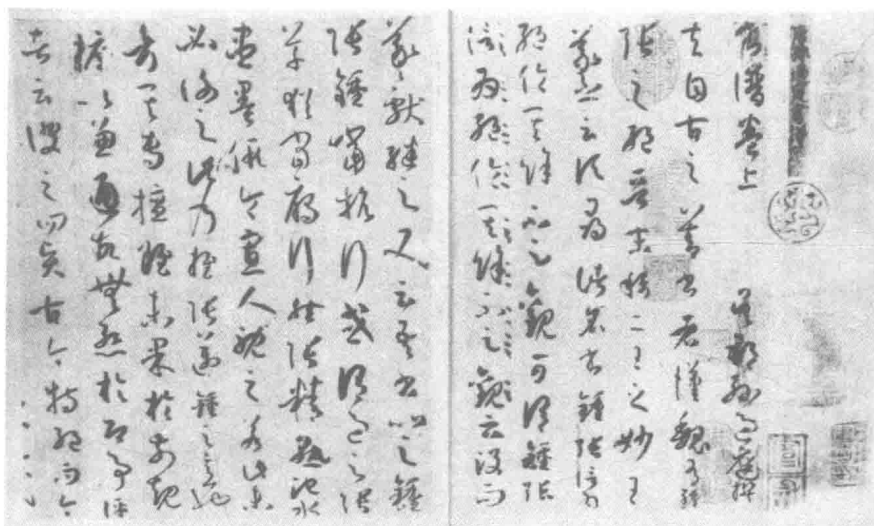 書譜卷上 吳郡孫過庭撰
夫自古之善書者漢魏有鍾
張之絕晉末稱二王之妙王
羲之云頃尋諸名書鍾張信為
絕倫其餘不足觀可謂鍾張
信為絕倫其餘不足觀云沒而
羲獻繼之又云吾書比之鍾
張鍾當抗行或謂過之張
草猶當雁行然張精熟池水
盡墨假令寡人耽之若此未
必謝之此乃推張邁鍾之意也
考其專擅雖未果於前規
摭以兼通故無慚於即事評
者云彼之四賢古今特絕而今